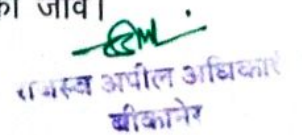 का जावे।
राजस्व अपील अधिकारी
बीकानेर